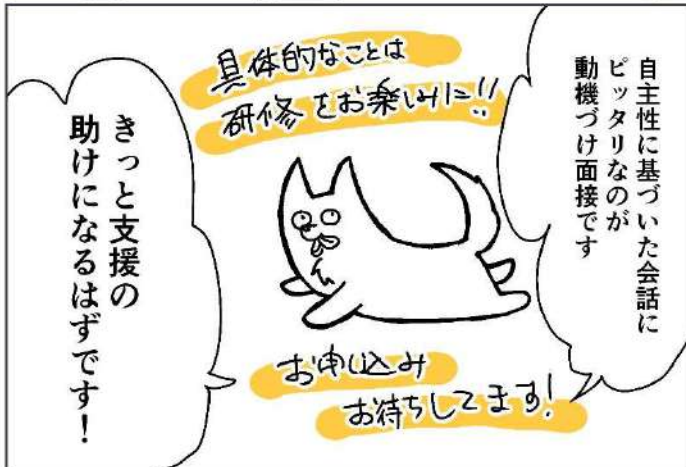 自主性に基づいた会話に
ピッタリなのが
動機づけ面接です
具体的なことは
研修をお楽しみに!!
きっと支援の
助けになるはずです！
お申し込み
お待ちしてます!